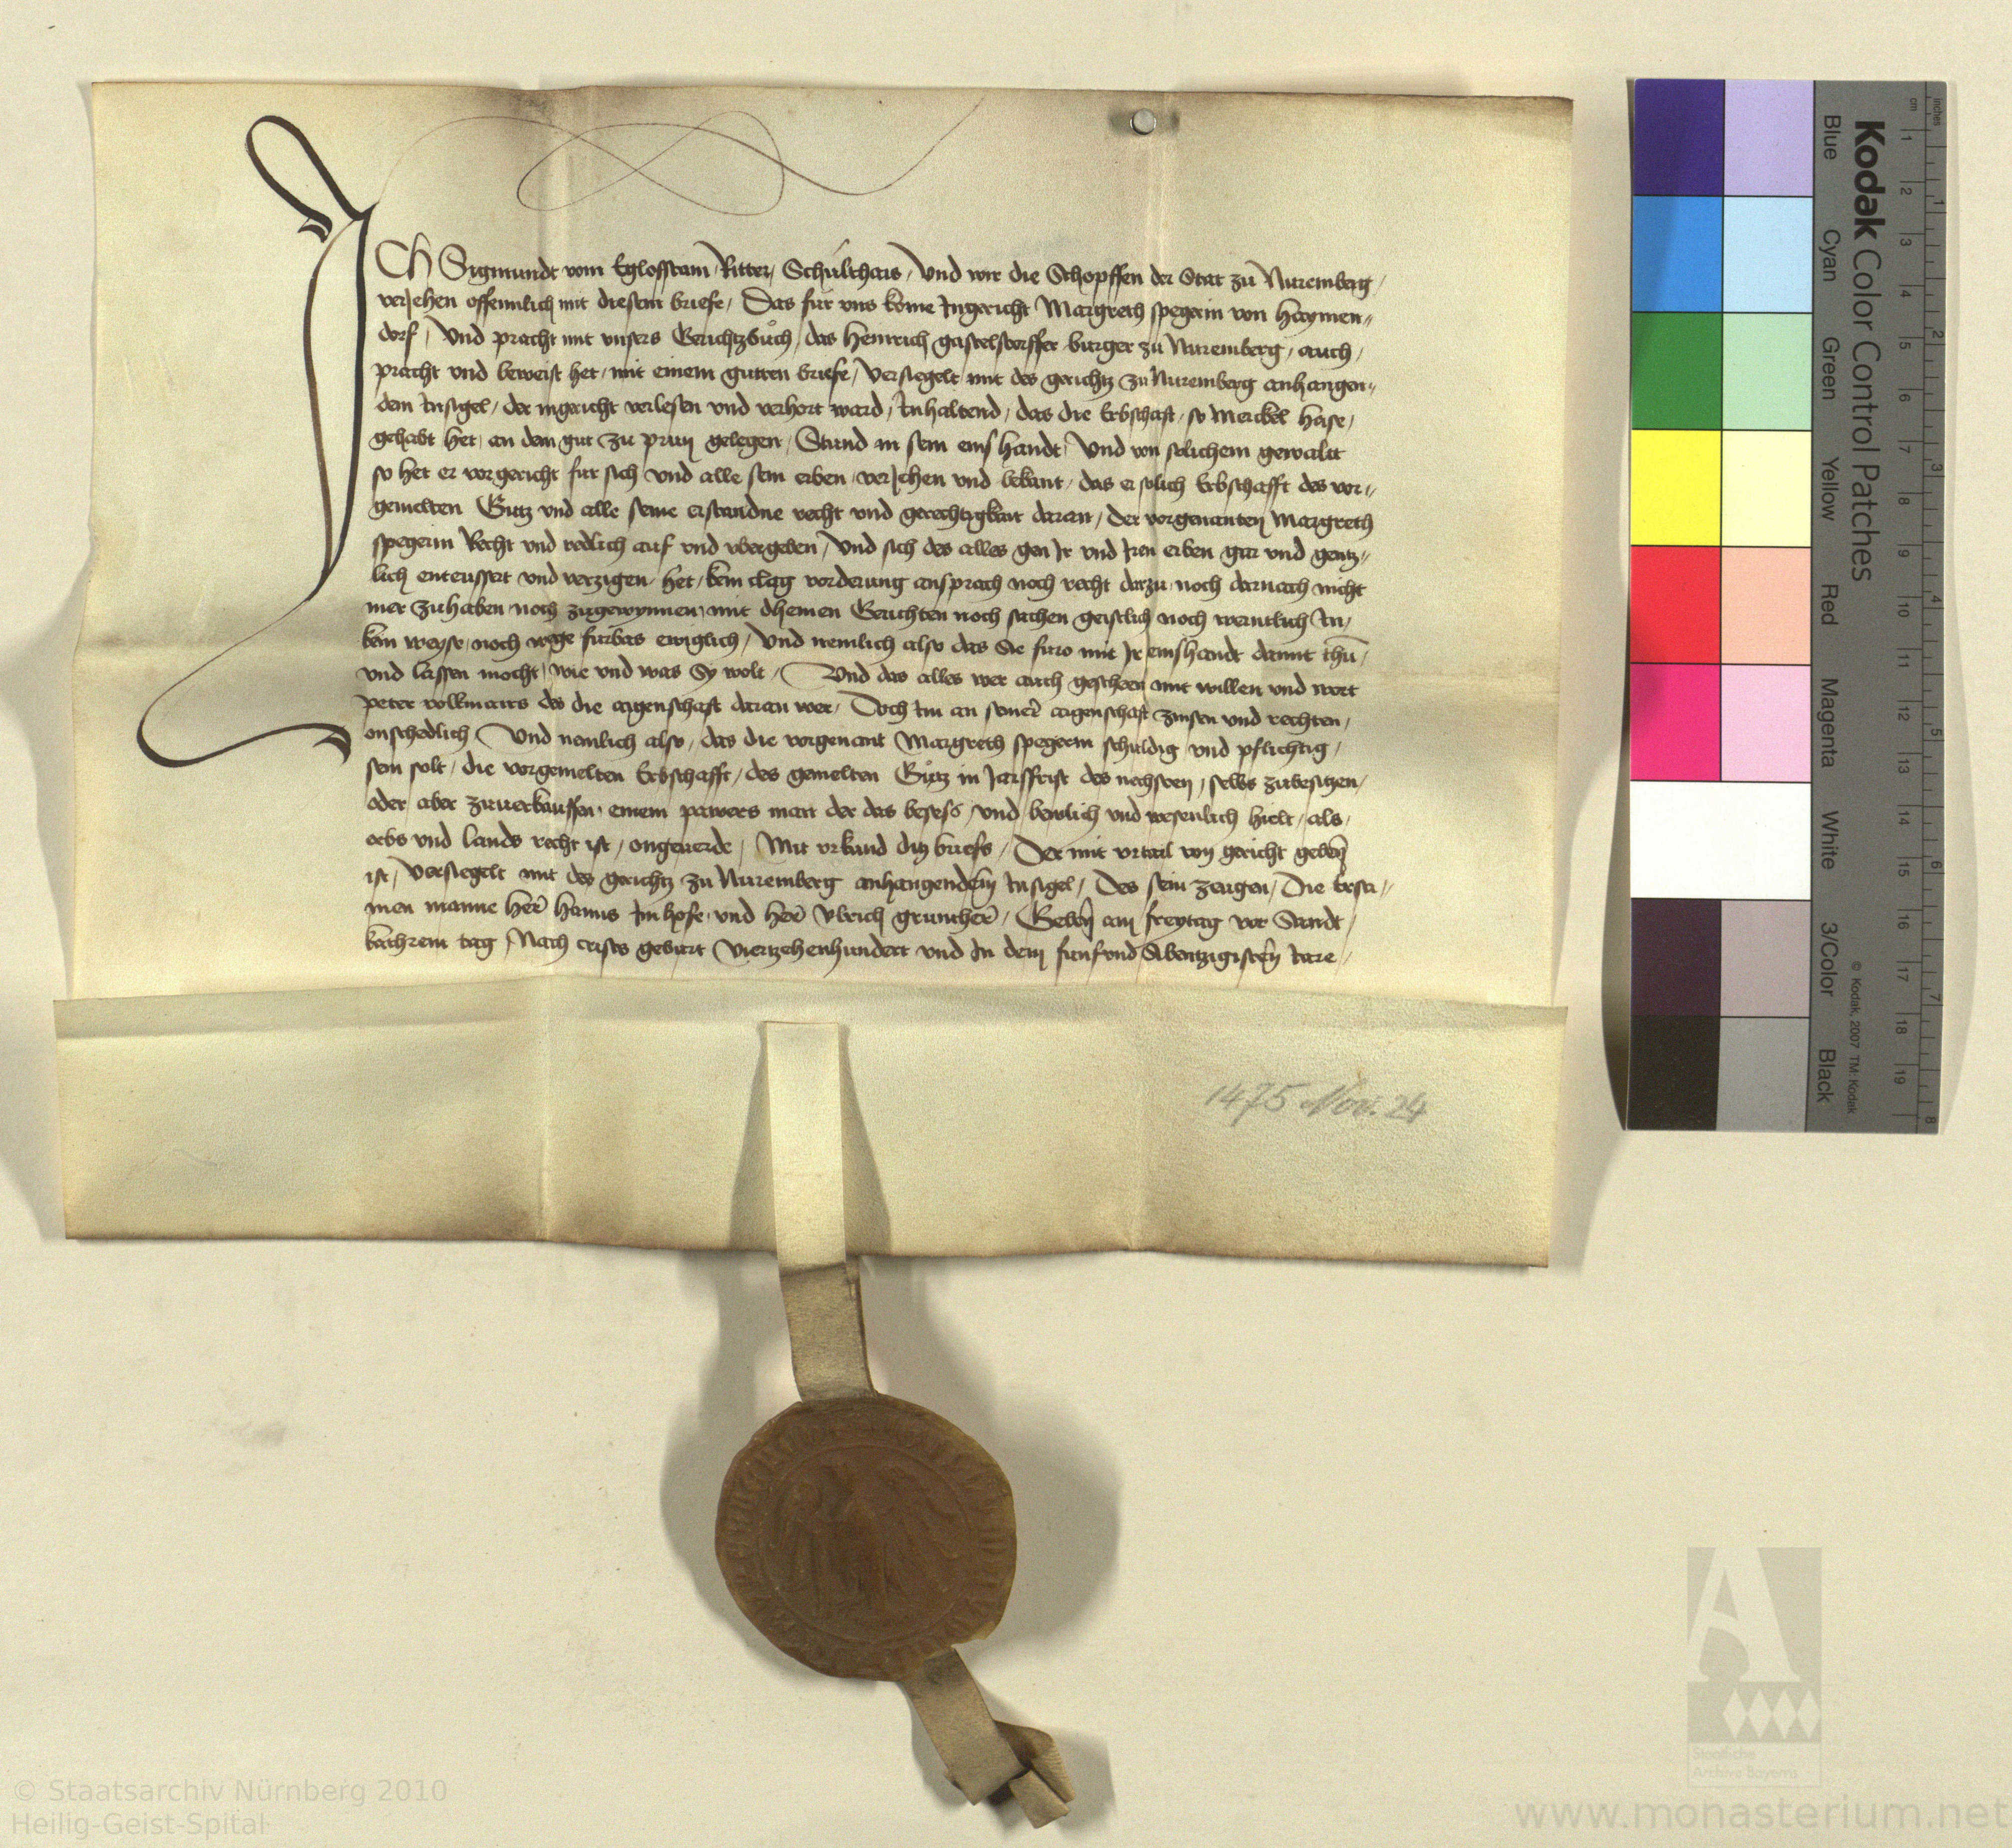 ICh Sigmundt vom Egloffstain Ritter Schulthais, Und wir die Schopffen der Stat zu Nuremberg,
verJehen offennlich mit diesem briefe, Das fur uns kome Ingericht Margreth spegerin von haymen„
dorf, Und pracht mit unsers Gerichtzbuch, das Heinrich gastelstorffer burger zu Nuremberg, auch,
pracht und beweist het, mit einem gutten briefe, Versiegelt mit des gerichtz zu Nuremberg anhangen„
dem Insigel, der ingericht verlesen und verhort ward, Inhaltend, das die Erbschaft, so Merckel hase,
gehabt het, an dem gut zu prun gelegen, Stund in sein eins handt, Und von solichem gewaltt
so het er vorgericht fur sich und alle sein erben, verJehen und bekant, das er solich Erbschafft des vor„
gemelten Gutz und alle seine erstandne recht und gerechtigkait daran, der vorgenanten Margreth
spegerin Recht und redlich auf und ubergeben, Und sich des alles gen Ir und Iren erben gar und gentz„
lich enteussert und verzigen, het, kein clag vorderung ansprach noch recht darzu, noch darnach nicht
mer zuhaben, noch zugewynnen, mit dheinen Gerichten noch sachen geistlich noch werntlich In,
kein weyse, noch wege furbas ewiglich, Und nemlich also das Sie furo mit Ir einshandt damit thu
und lassen mocht, wie und was Sy wolt, Und das alles wer auch gescheen mit willen und wort
peter vollmairs des die aigenschaft daran wer, Doch Im an seiner aigenschaft zinsen und rechten,
onschedlich Und nemlich also, das die vorgenant Margreth spegerin schuldig und pflichtig,
sein solt, die vorgemelten Erbschafft, des gemelten Gutz in Jarssfrist des nechsten, selbs zubesitzen,
oder aber zuverkauffen, einem pawers man der das besess, und bewlich und wesenlich hielt, als,
erbs und lands recht ist, ongeverde, Mit urkund ditz briefs, Der mit urtail von gericht geben
ist, Versiegelt mit des gerichtz zu Nuremberg anhangendem Insigel, Des sein zeugen, Die Ersa„
men manne her hanns Im hofe, und her Ulrich gruntherr, Geben am freytag vor Sandt,
kathrein tag, Nach crists geburt Viertzehenhundert und In dem funfund Sibentzigisten Jare
1475 Nov. 24
Kodak Color Control Patches
Blue Cyan Green Yellow Red Magenta White 3/Color Black
© Kodak, 2007 TM: Kodak
inches 1 2 3 4 5 6 7 8
cm 1 2 3 4 5 6 7 8 9 10 11 12 13 14 15 16 17 18 19
Staatliche
Archive Bayerns
© Staatsarchiv Nürnberg 2010
Heilig-Geist-Spital
www.monasterium.net